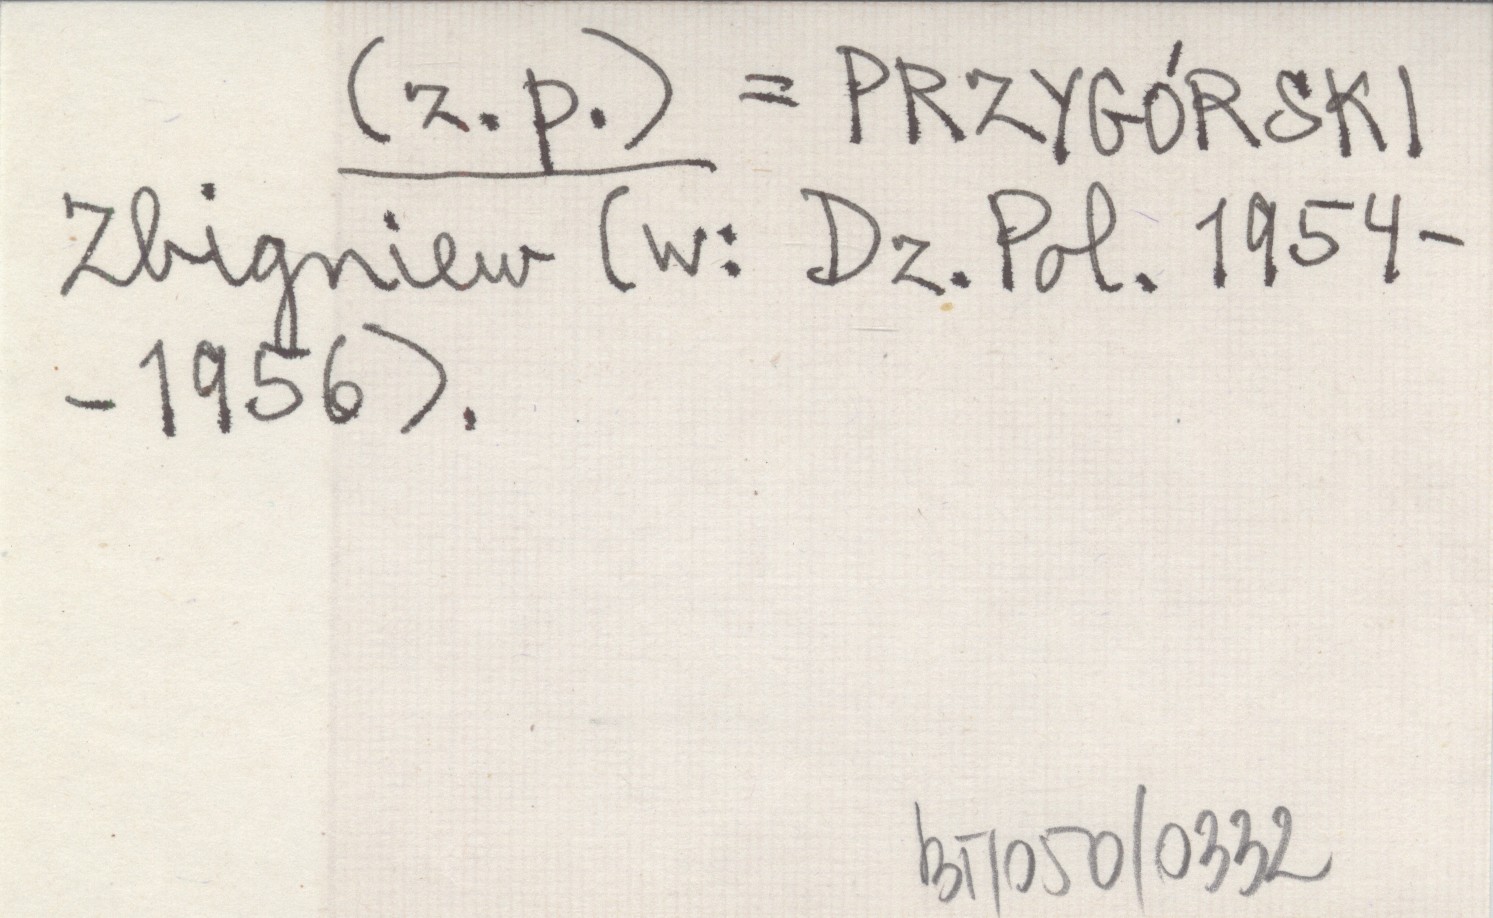 (z.p.) = PRZYGÓRSKI
Zbigniew (w: Dz. Pol. 1954-
-1956).
BT/050/0332